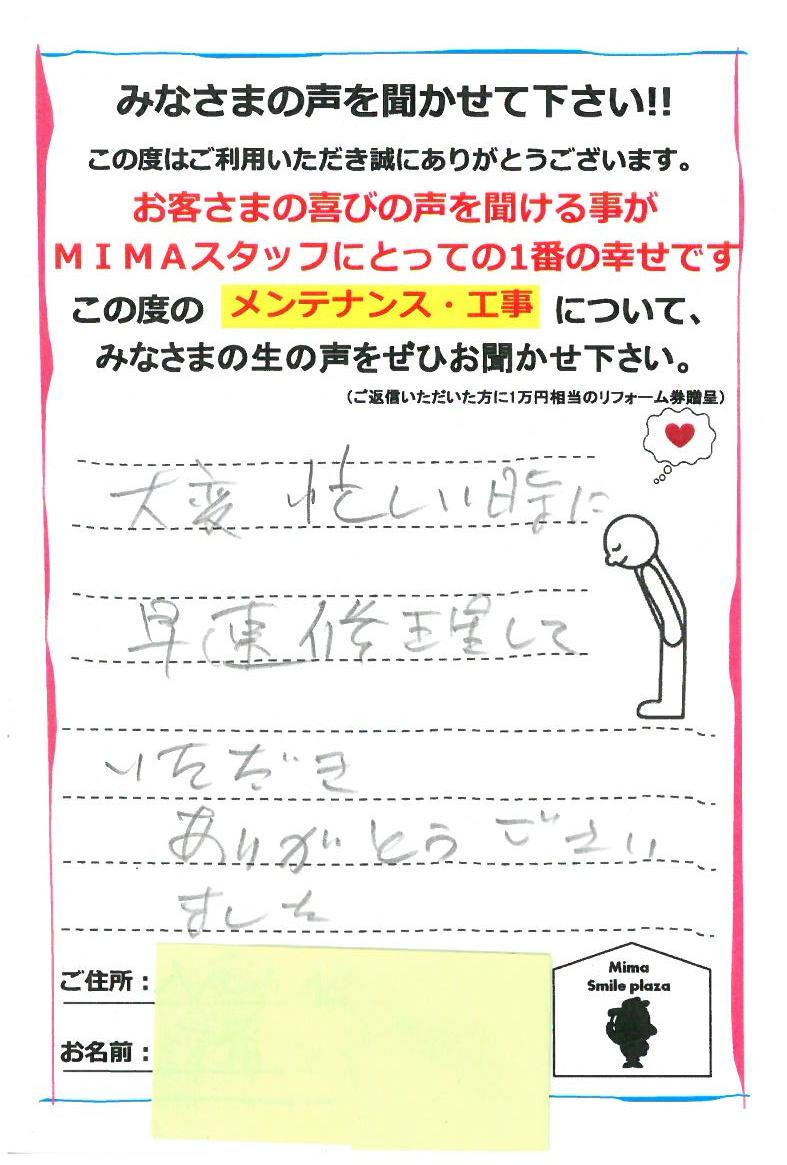 みなさまの声を聞かせて下さい!!
この度はご利用いただき誠にありがとうございます。
お客さまの喜びの声を聞ける事が
ＭＩＭＡスタッフにとっての1番の幸せです
この度の メンテナンス・工事 について、
みなさまの生の声をぜひお聞かせ下さい。
（ご返信いただいた方に1万円相当のリフォーム券贈呈）
大変 忙しい時に
早速修理して
いただき
ありがとうござい
ました
ご住所：
お名前：
Mima
Smile plaza